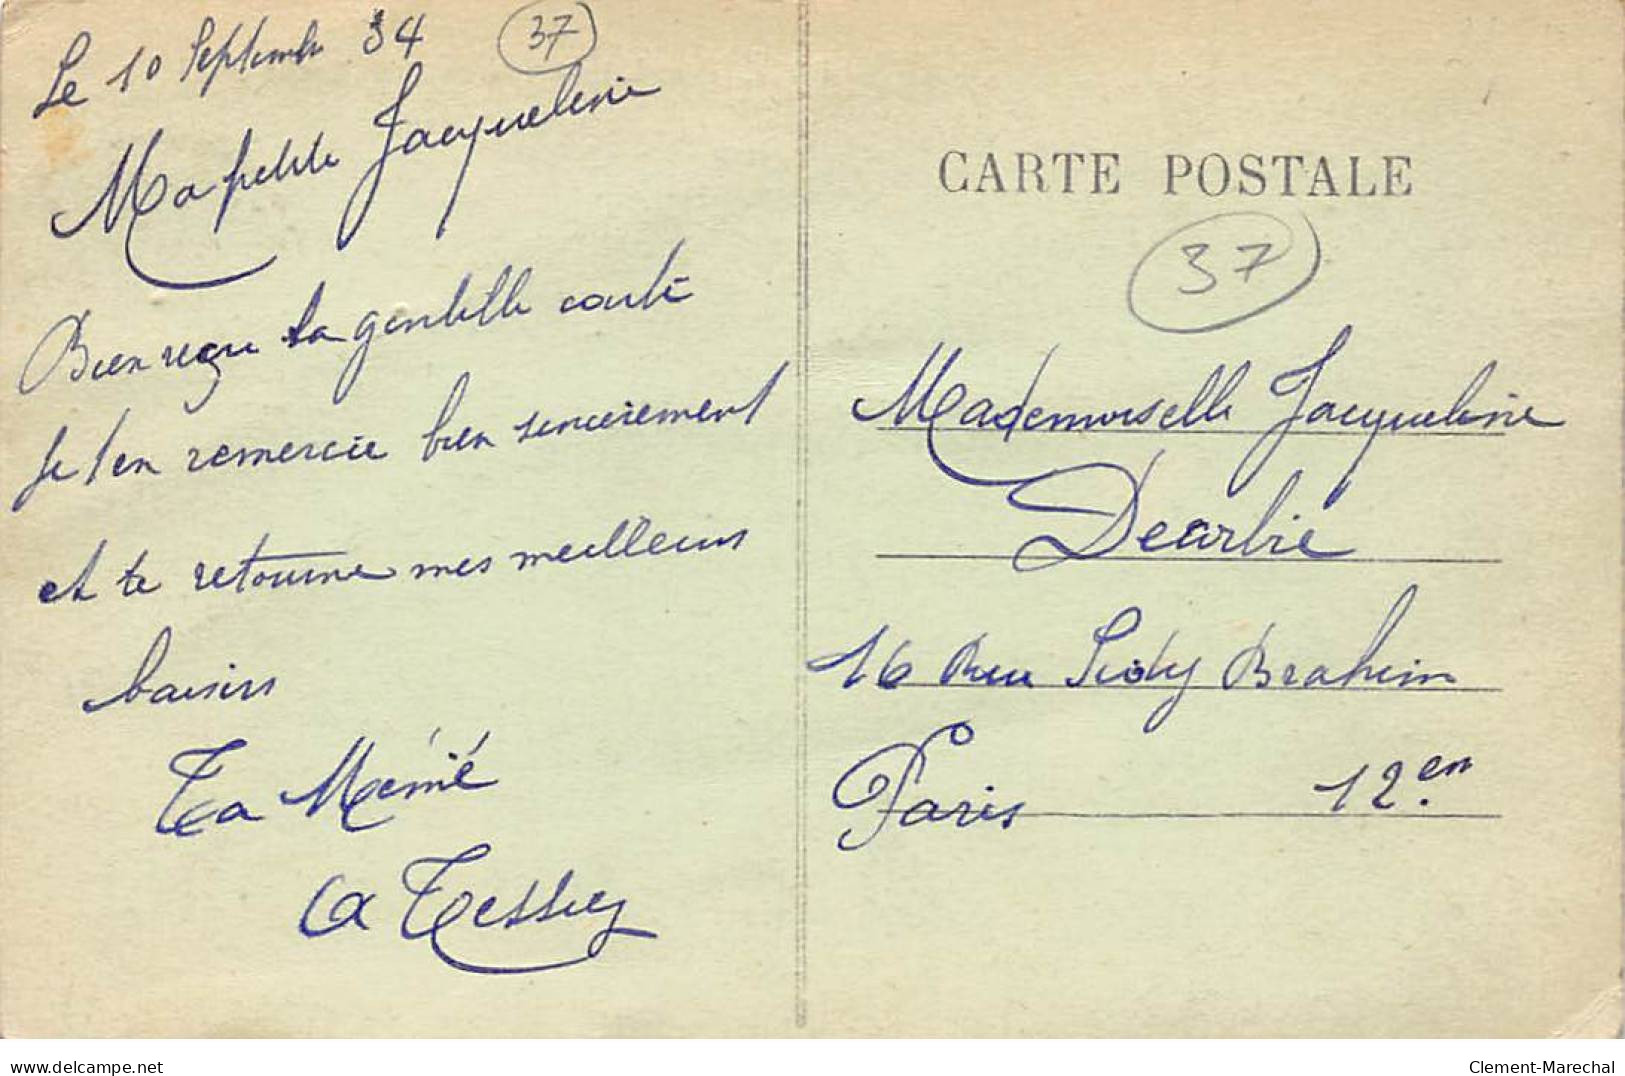 Le 10 Septembre 34
37
Ma petite Jacqueline
Bien reçu ta gentille carte
Je t'en remercie bien sincèrement
et te retourne mes meilleurs
baisers
Ta Mémé
CARTE POSTALE
37
Mademoiselle Jacqueline
Dearbie
16 Rue Sidy Brahim
Paris 12.en
delcampe.net
Clement-Marechal